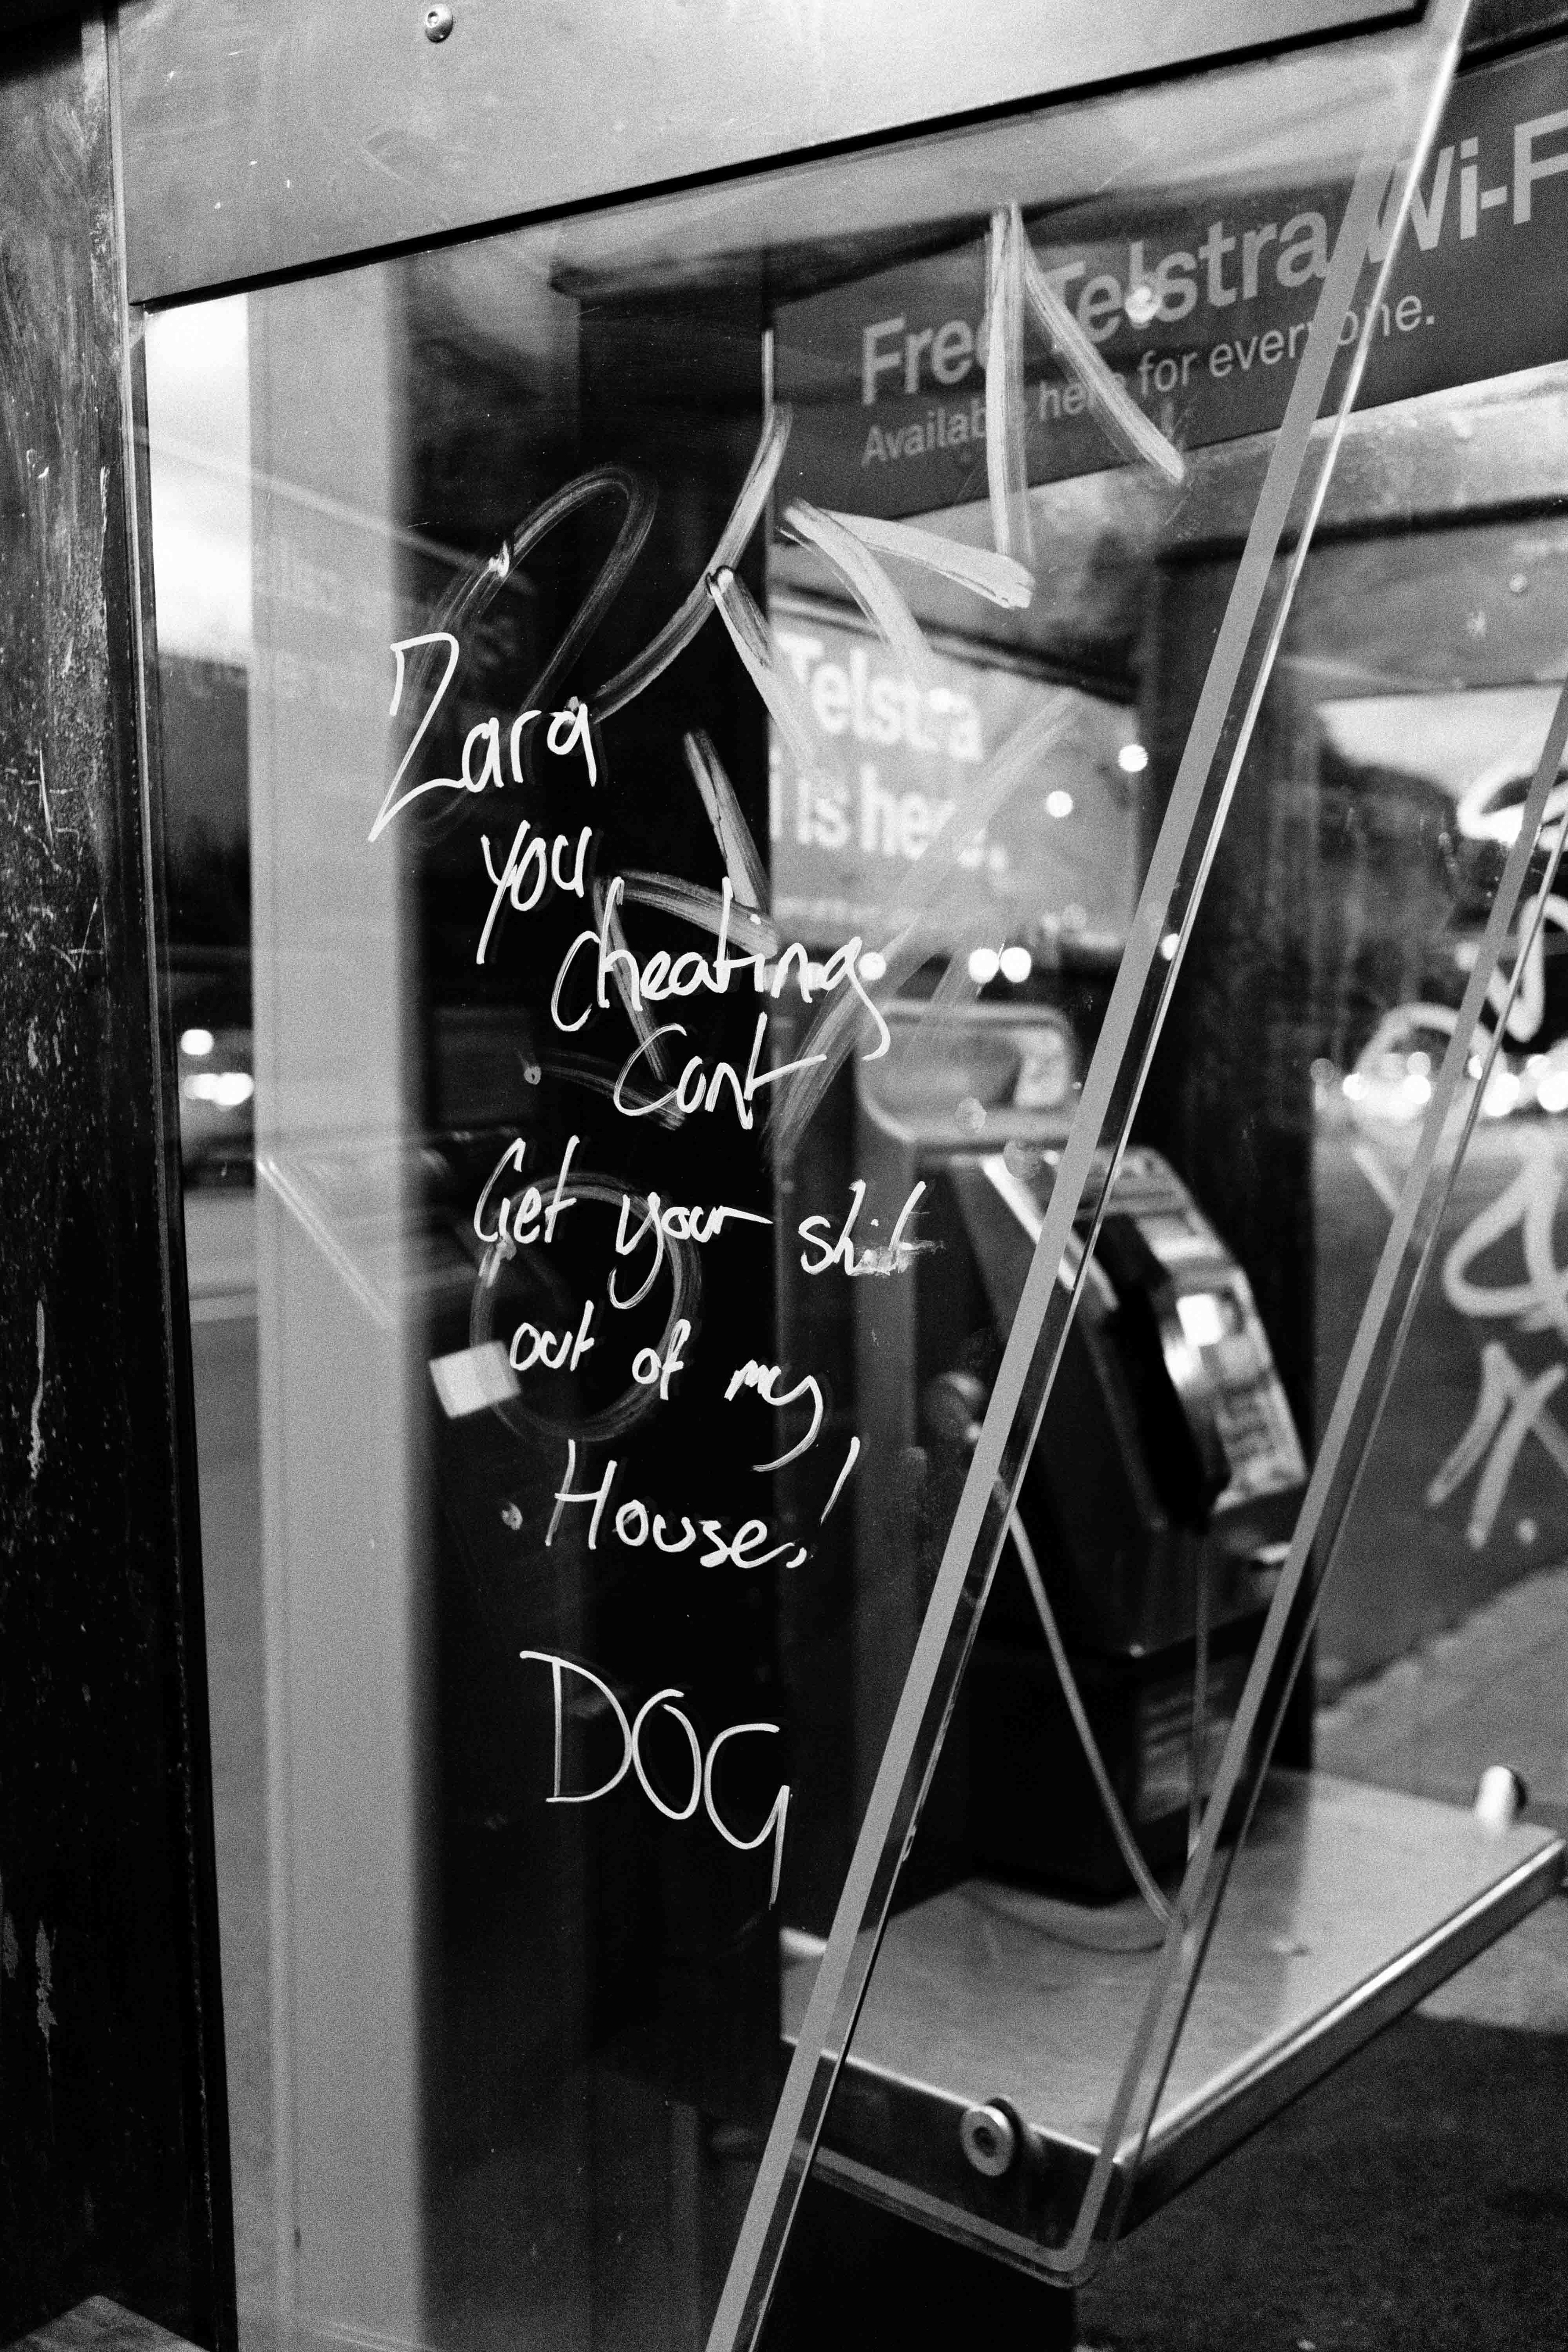 Free Telstra Wi-F
Available here for everyone.
Telstra
is here.
Zara
you
cheating
Cont
Get your shit
out of my
House!
DOG